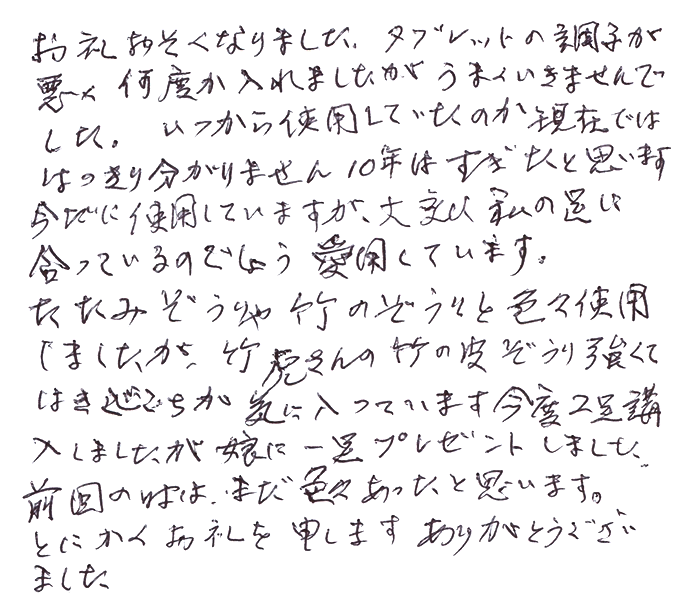 お礼おそくなりました、タブレットの調子が
悪く 何度か入れましたがうまくいきませんで
した。 いつから使用していたのか現在では
はっきり分がりません 10年はすぎたと思います
今だに使用していますが、大変 私の足に
合っているのでしょう 愛用しています。
たたみぞうりや竹のぞうりと色々使用
しましたが、竹虎さんの竹の皮ぞうり強くて
はきごこちが気に入っています今度2足講
入しましたが娘に一足プレゼントしました、
前回のは、まだ色々あったと思います。
とにかくお礼を申します ありがとうござい
ました